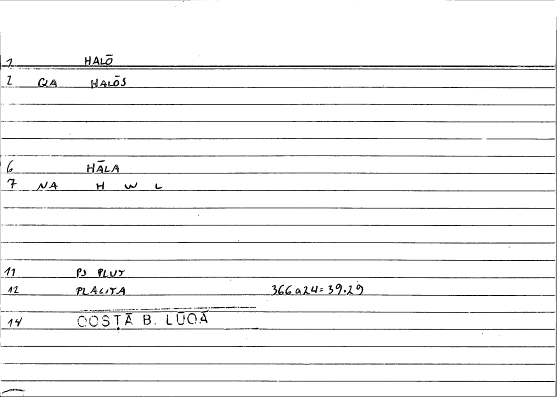 1 HALŌ
2 QA HALŌS
6 HĀLA
7 NA H W L
11 PS PLUT
12 PLACITA 366a24=39.29
14 COSTĀ B. LŪQĀ